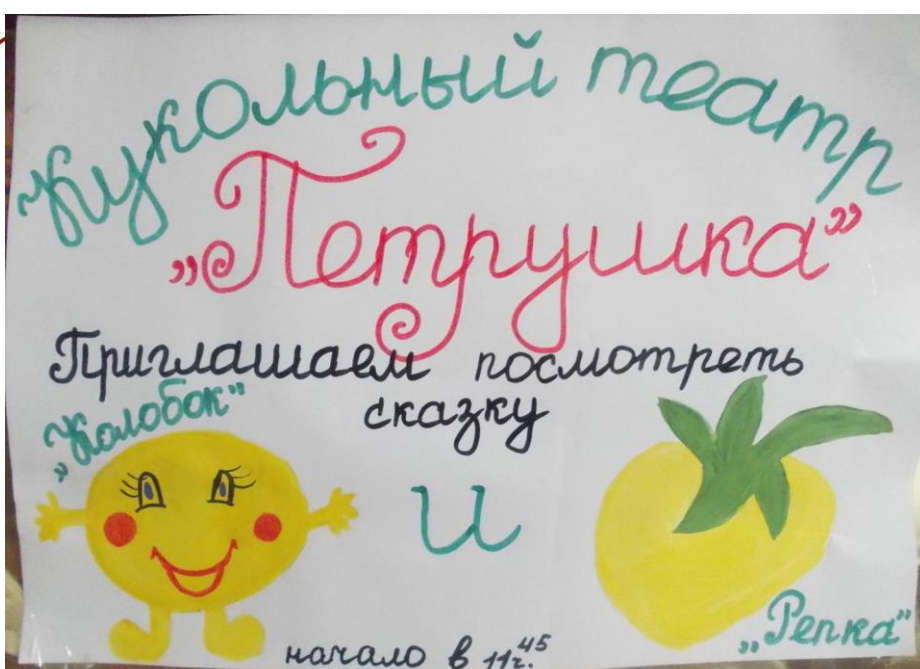 Кукольный театр
„Петрушка”
Приглашаем посмотреть
сказку
„Колобок”
и
„Репка”
начало в 11ч.45